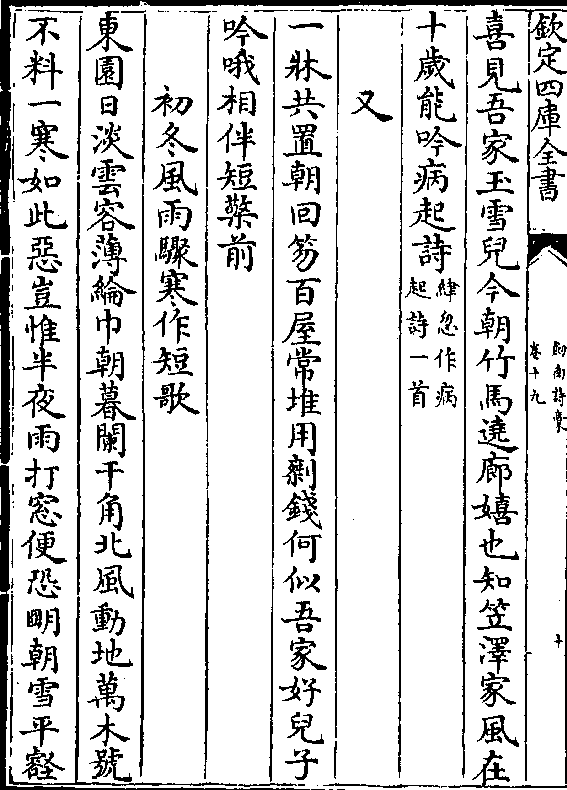 欽定四庫全書
劍南詩稾
卷十九
十
喜見吾家玉雪兒今朝竹馬遶廊嬉也知笠澤家風在
十歲能吟病起詩
緯忽作病
起詩一首
又
一牀共置朝回笏百屋常堆用剩錢何似吾家好兒子
吟哦相伴短檠前
初冬風雨驟寒作短歌
東園日淡雲容薄綸巾朝暮闌干角北風動地萬木號
不料一寒如此惡豈惟半夜雨打窓便恐明朝雪平壑